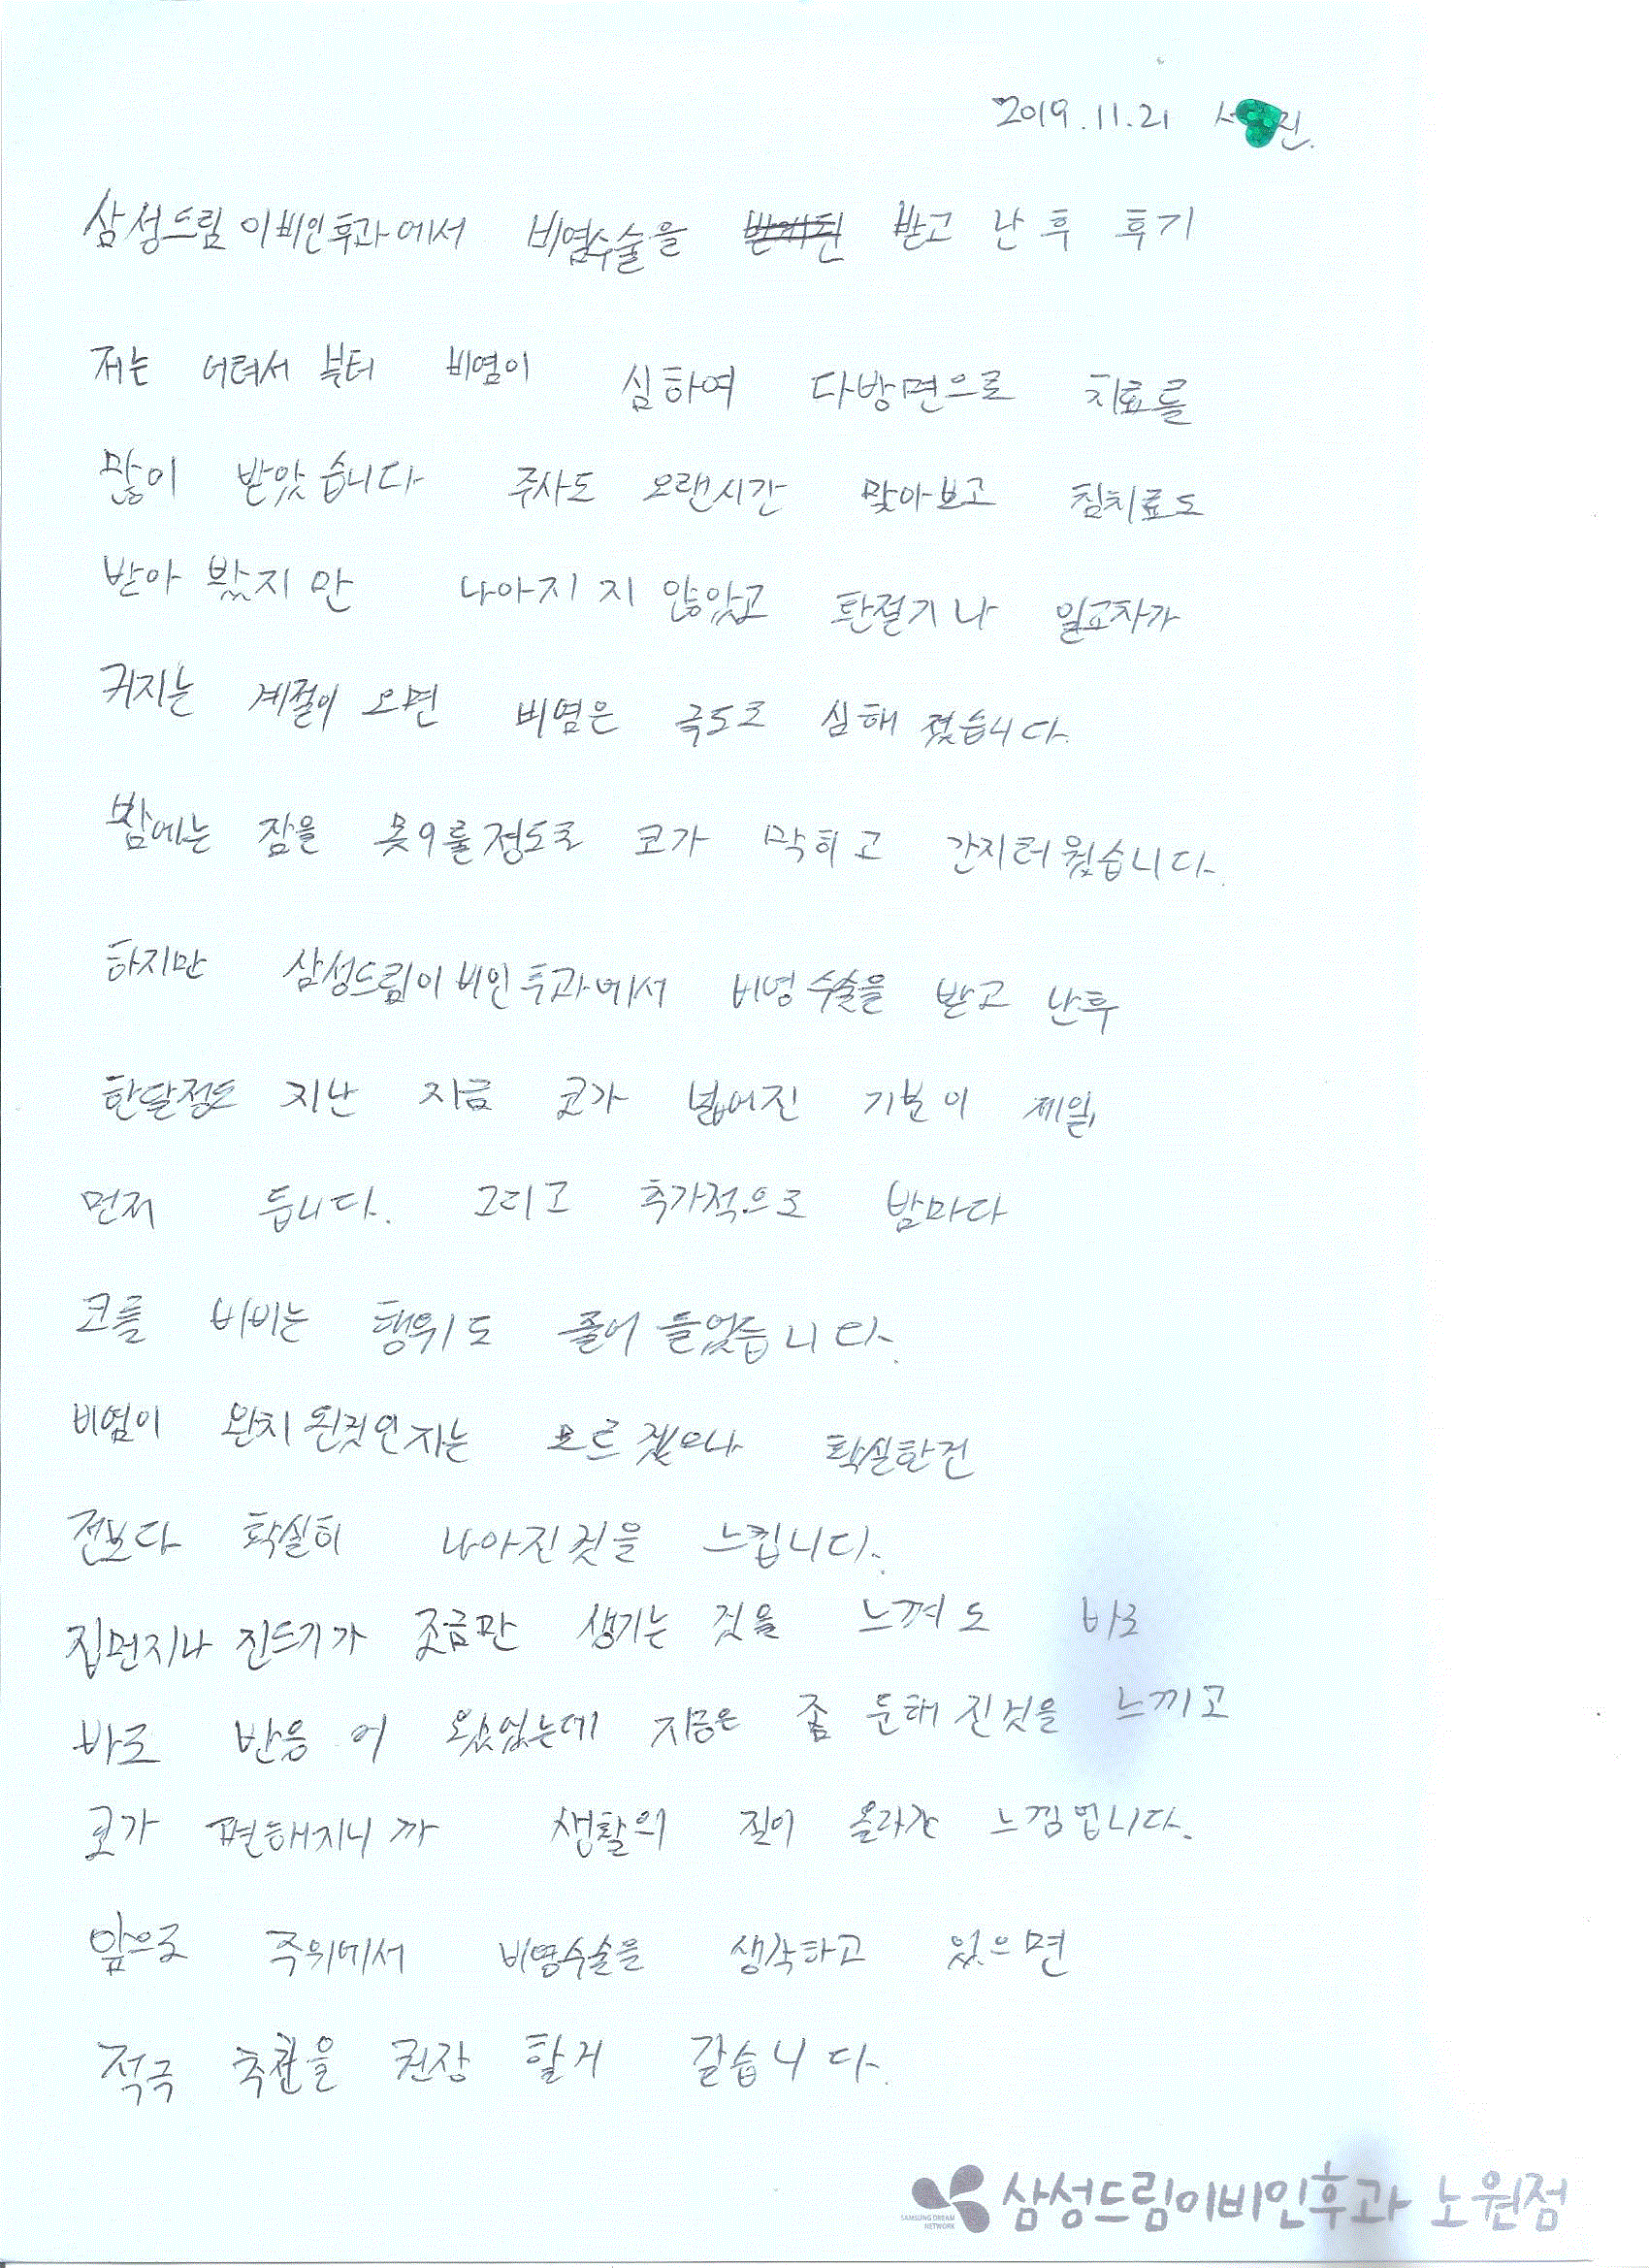 2019.11.21 서 진.
삼성드림이비인후과에서 비염수술을 받고 난 후 후기
저는 어려서 부터 비염이 심하여 다방면으로 치료를
많이 받았습니다 주사도 오랜시간 맞아보고 침치료도
받아 봤지만 나아지지 않았고 환절기나 일교차가
커지는 계절이 오면 비염은 극도로 심해 졌습니다.
밤에는 잠을 못이룰정도로 코가 막히고 간지러웠습니다.
하지만 삼성드림이비인후과에서 비염수술을 받고 난후
한달정도 지난 지금 코가 넓어진 기분이 제일
먼저 듭니다. 그리고 추가적으로 밤마다
코를 비비는 행위도 줄어 들었습니다.
비염이 완치 된것인지는 모르겠으나 확실한건
전보다 확실히 나아진것을 느낍니다.
집먼지나 진드기가 조금만 생기는 것을 느껴도 바로
바로 반응이 왔었는데 지금은 좀 둔해진것을 느끼고
코가 편해지니까 생활의 질이 올라간 느낌입니다.
앞으로 주위에서 비염수술을 생각하고 있으면
적극 추천을 권장 할거 같습니다.
삼성드림이비인후과 노원점
SAMSUNG DREAM
NETWORK